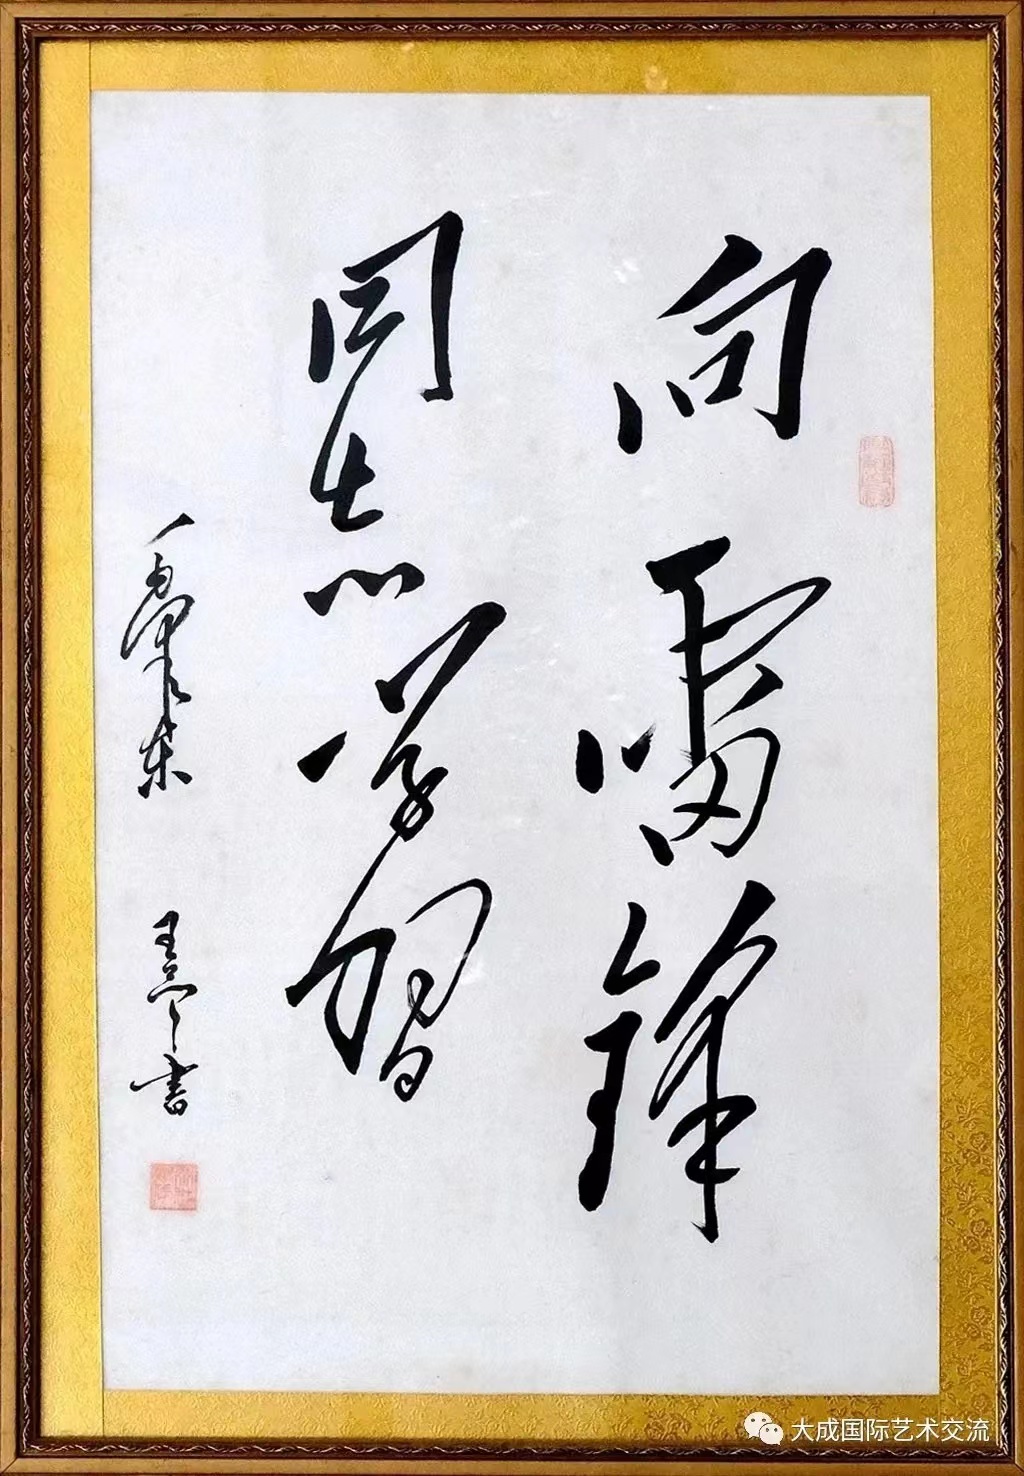 向雷锋
同志学习
毛泽东
王亭书
大成国际艺术交流